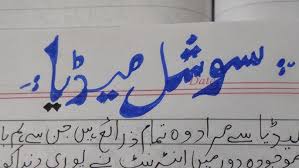 سوشل میڈیا
Date
میڈیا سے مراد وہ تمام ذرائع ہیں جن سے ہم
موجودہ دور میں انٹرنیٹ نے پوری دنیا کو